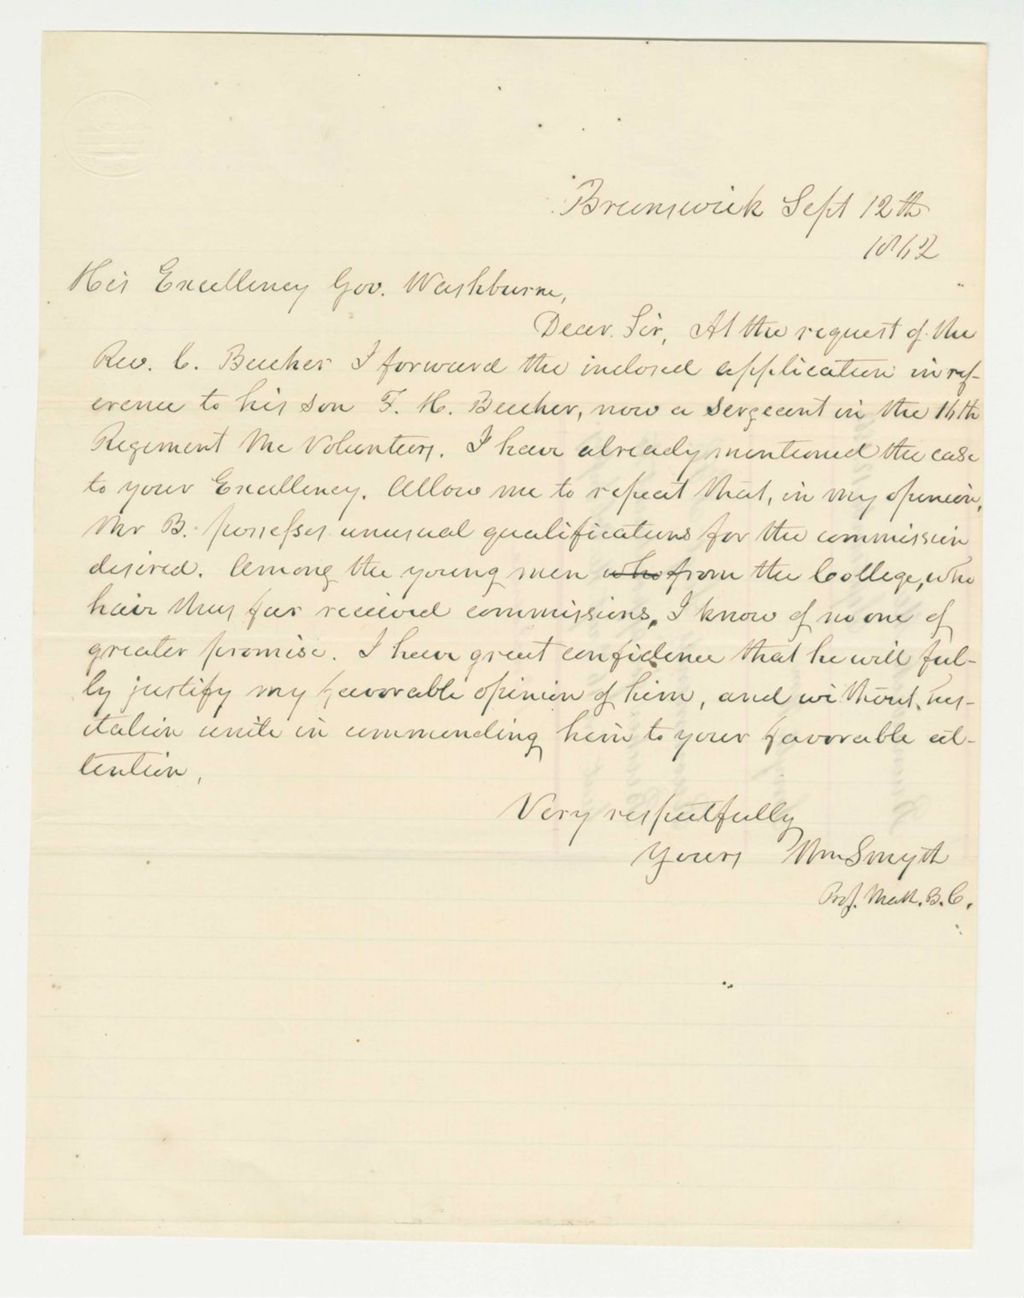 Brunswick Sept 12th
1862
His Excellency Gov. Washburne,
Dear Sir, At the request of the
Rev. C. Beecher I forward the inclosed application in ref-
erence to his son F. H. Beecher, now a Sergeant in the 16th
Regiment Me Volunteers. I have already mentioned the case
to your Excellency. Allow me to repeat that, in my opinion,
Mr B. possesses unusual qualifications for the commission
desired. Among the young men who from the College, who
have thus far received commissions, I know of no one of
greater promise. I have great confidence that he will ful-
ly justify my favorable opinion of him, and without hes-
itation unite in commending him to your favorable at-
tention.
Very respectfully
Yours Wm Smyth
Prof. Math. B. C.